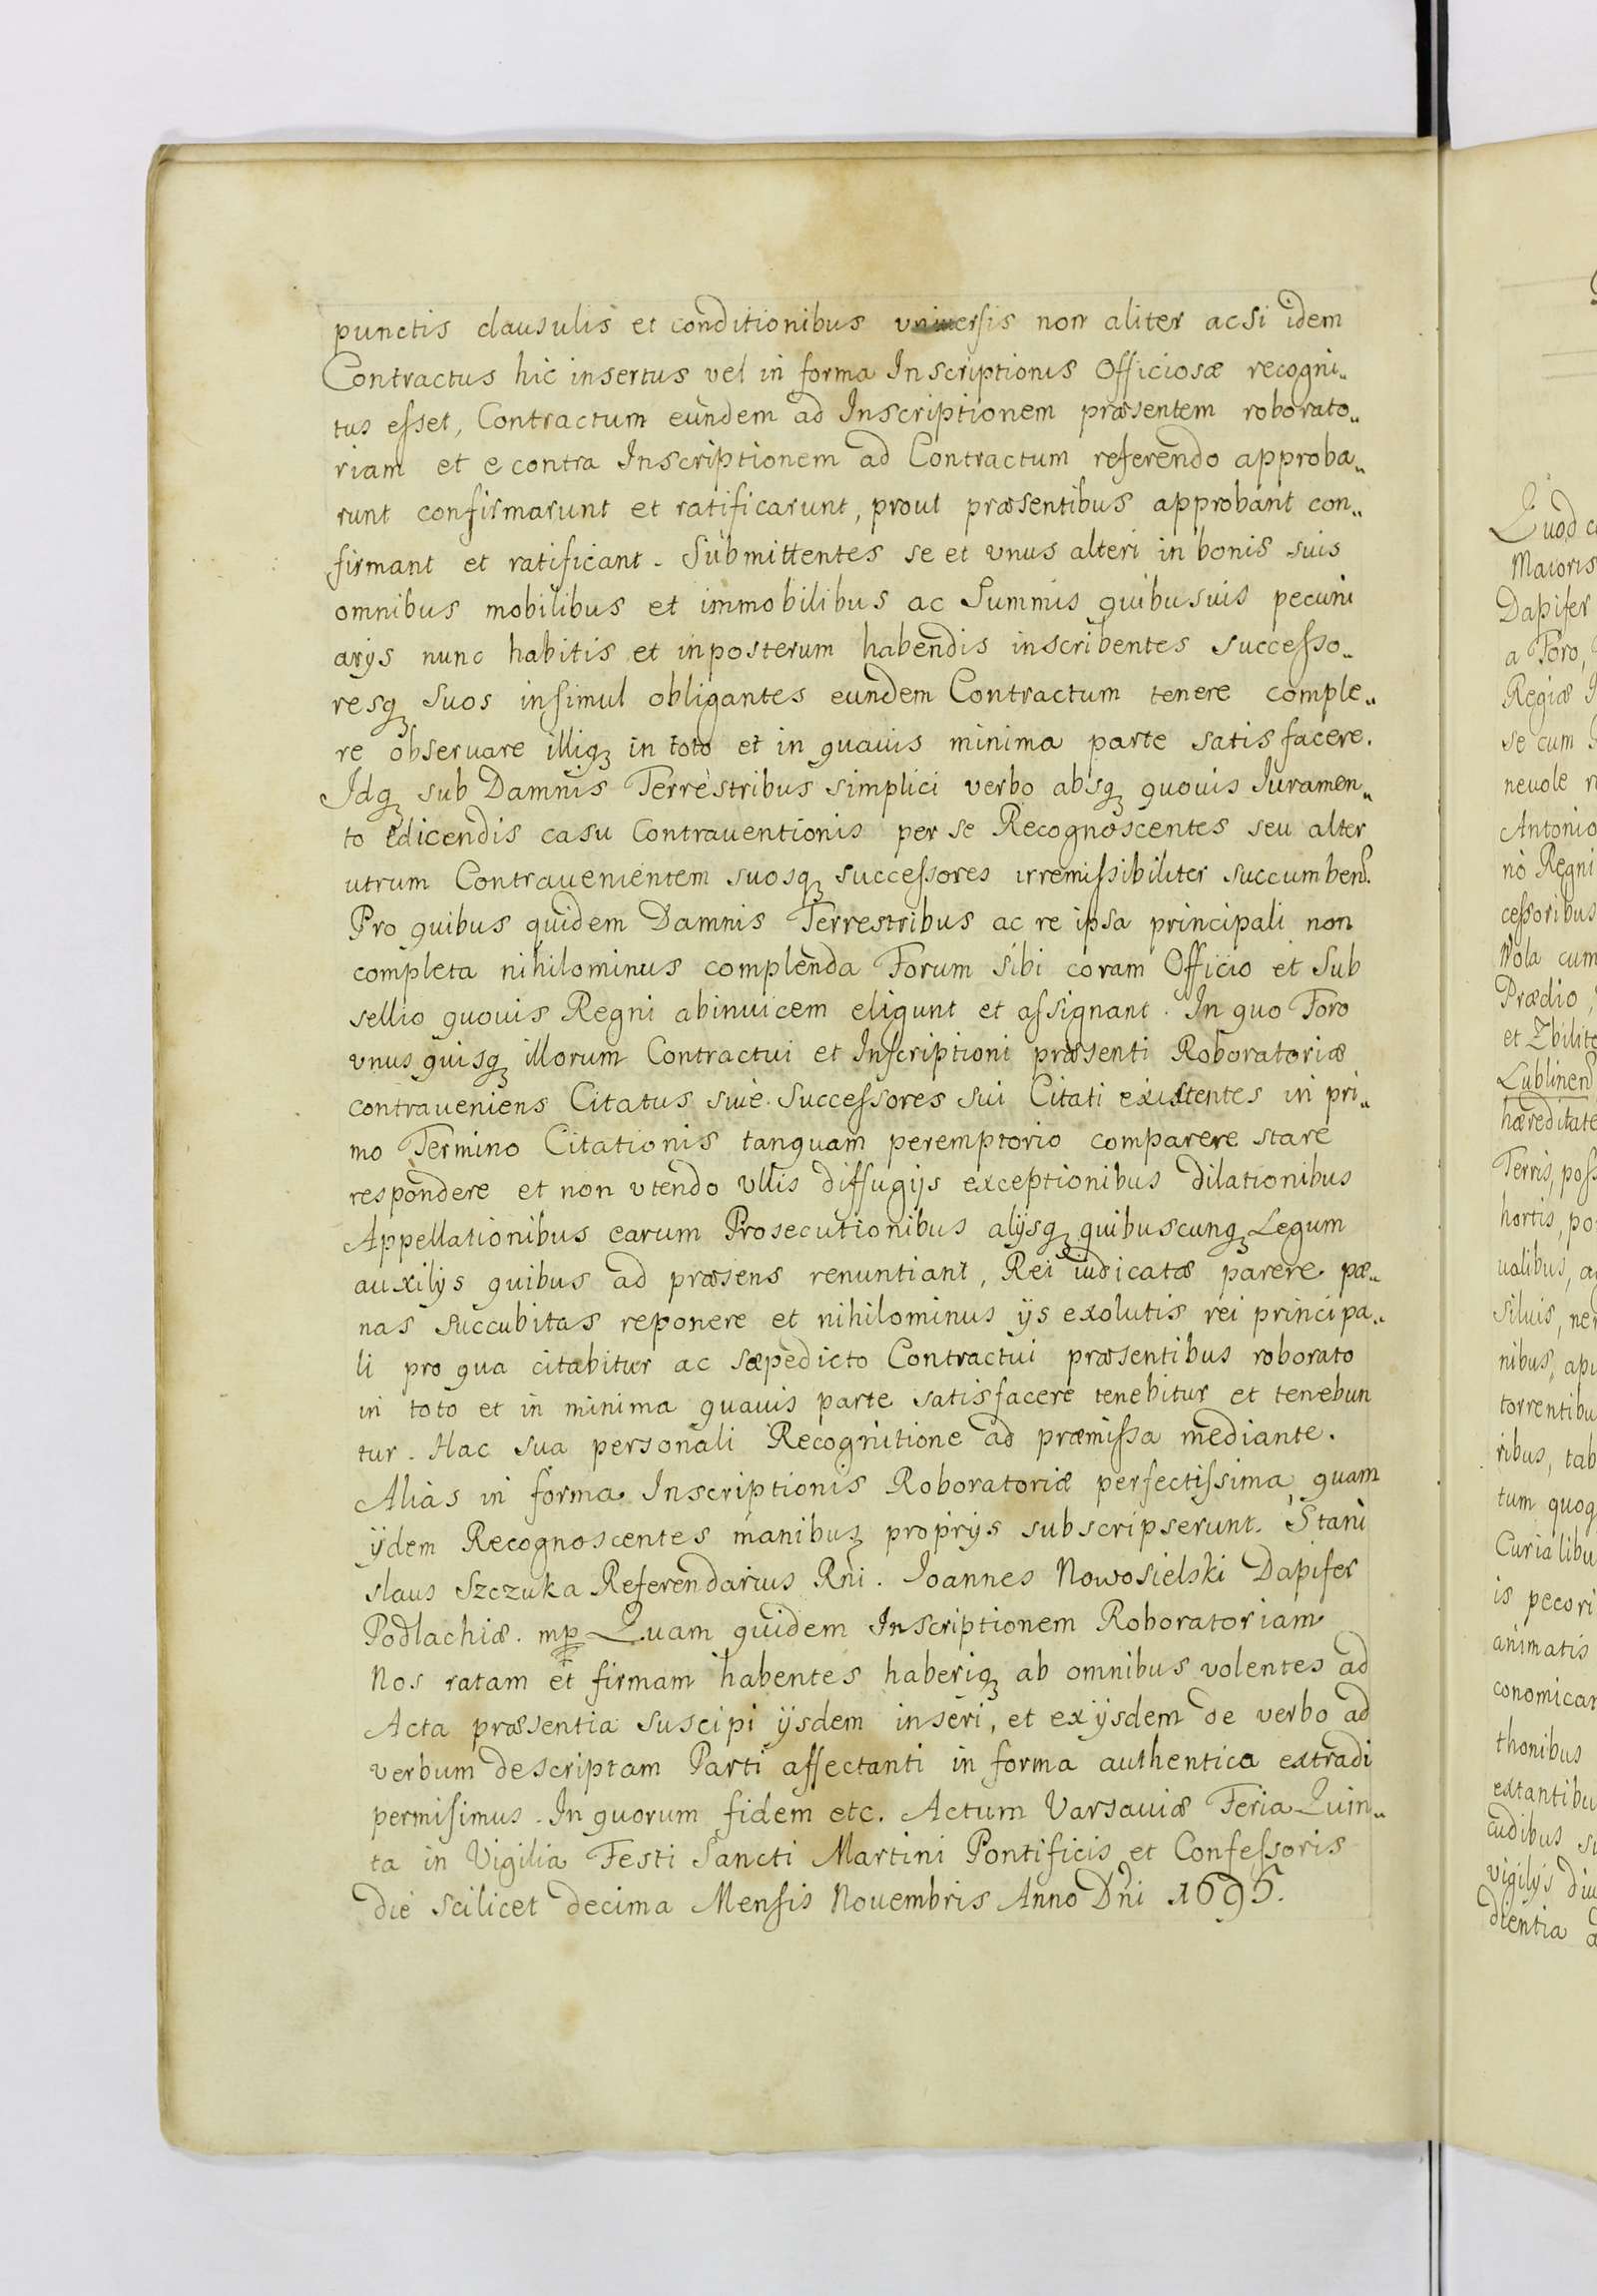 punctis clausulis et conditionibus vniuersis non aliter acsi idem
Contractus hic insertus vel in forma Inscriptionis Officiosæ recogni„
tus eſset, Contractum eundem ad Inscriptionem præsentem roborato„
riam et e contra Inscriptionem ad Contractum referendo approba„
runt confirmarunt et ratificarunt, prout præsentibus approbant con„
firmant et ratificant. Submittentes se et vnus alteri in bonis suis
omnibus mobilibus et immobilibus ac Summis quibusuis pecuni
arÿs nunc habitis et inposterum habendis inscribentes succeſso„
resqꝫ suos inſimul obligantes eundem Contractum tenere comple„
re obseruare illiqꝫ in toto et in quauis minima parte satisfacere.
Idqꝫ sub Damnis Terrestribus simplici verbo absqꝫ quouis Iuramen„
to edicendis casu Contrauentionis per se Recognoscentes seu alter
utrum Contrauenientem suosqꝫ succeſsores irremiſsibiliter succumbend.
Pro quibus quidem Damnis Terrestribus ac re ipsa principali non
completa nihilominus complenda Forum sibi coram Officio et Sub
sellio quouis Regni abinuicem eligunt et aſsignant. In quo Foro
vnusquisqꝫ illorum Contractui et Inſcriptioni præsenti Roboratoriæ
contraueniens Citatus siue Succeſsores sui Citati existentes in pri„
mo Termino Citationis tanquam peremptorio comparere stare
respondere et non vtendo vllis diffugijs exceptionibus dilationibus
Appellationibus earum Prosecutionibus alijsqꝫ quibuscunqꝫ Legum
auxilÿs quibus ad præsens renuntiant, Rei iudicatæ parere pæ„
nas succubitas reponere et nihilominus ÿs exolutis rei principa„
li pro qua citabitur ac sæpedicto Contractui præsentibus roborato
in toto et in minima quauis parte satisfacere tenebitur et tenebun
tur. Hac sua personali Recognitione ad præmiſsa mediante.
Alias in forma Inscriptionis Roboratoriæ perfectiſsima, quam
ijdem Recognoscentes manibus proprÿs subscripserunt. Stani
slaus Szczuka Referendarius Rni. Joannes Nowosielski Dapifer
Podlachiæ. mp Quam quidem Inscriptionem Roboratoriam
Nos ratam et firmam habentes haberiqꝫ ab omnibus volentes ad
Acta præsentia suscipi ijsdem inseri, et ex ijsdem de verbo ad
verbum descriptam Parti affectanti in forma authentica extradi
permiſimus. In quorum fidem etc. Actum Varsauiæ Feria Quin„
ta in Vigilia Festi Sancti Martini Pontificis et Confeſsoris
die scilicet decima Menſis Nouembris Anno Dni 1695.
Quod c
Maioris
Dapifer
a Foro,
Regiæ
se cum
neuole r
Antonio
no Regni
ceſsoribus
Wola cum
Prædio,
et Zbilit
Lublinen
hæreditate
Terris, poſs
hortis, po
ualibus, a
siluis, ne
nibus, apu
torrentibu
ribus, tab
tum quoq
Curialibu
is pecori
animatis
conomicar
thonibus
extantibu
cudibus s
vigilÿs diu
dientia a